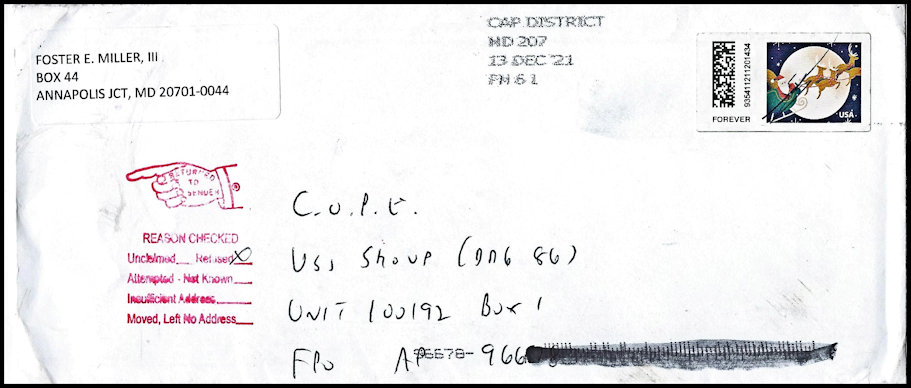 FOSTER E. MILLER, III
BOX 44
ANNAPOLIS JCT, MD 20701-0044
CAP DISTRICT
MD 207
13 DEC '21
PM 6 L
FOREVER
9354112111201434
USA
RETURNED
TO
SENDER
REASON CHECKED
Unclaimed Refused X
Attempted - Not Known
Insufficient Address
Moved, Left No Address
C.O.P.E.
USS SHOUP (DDG 86)
UNIT 100192 BOX 1
FPO AP 96678-966